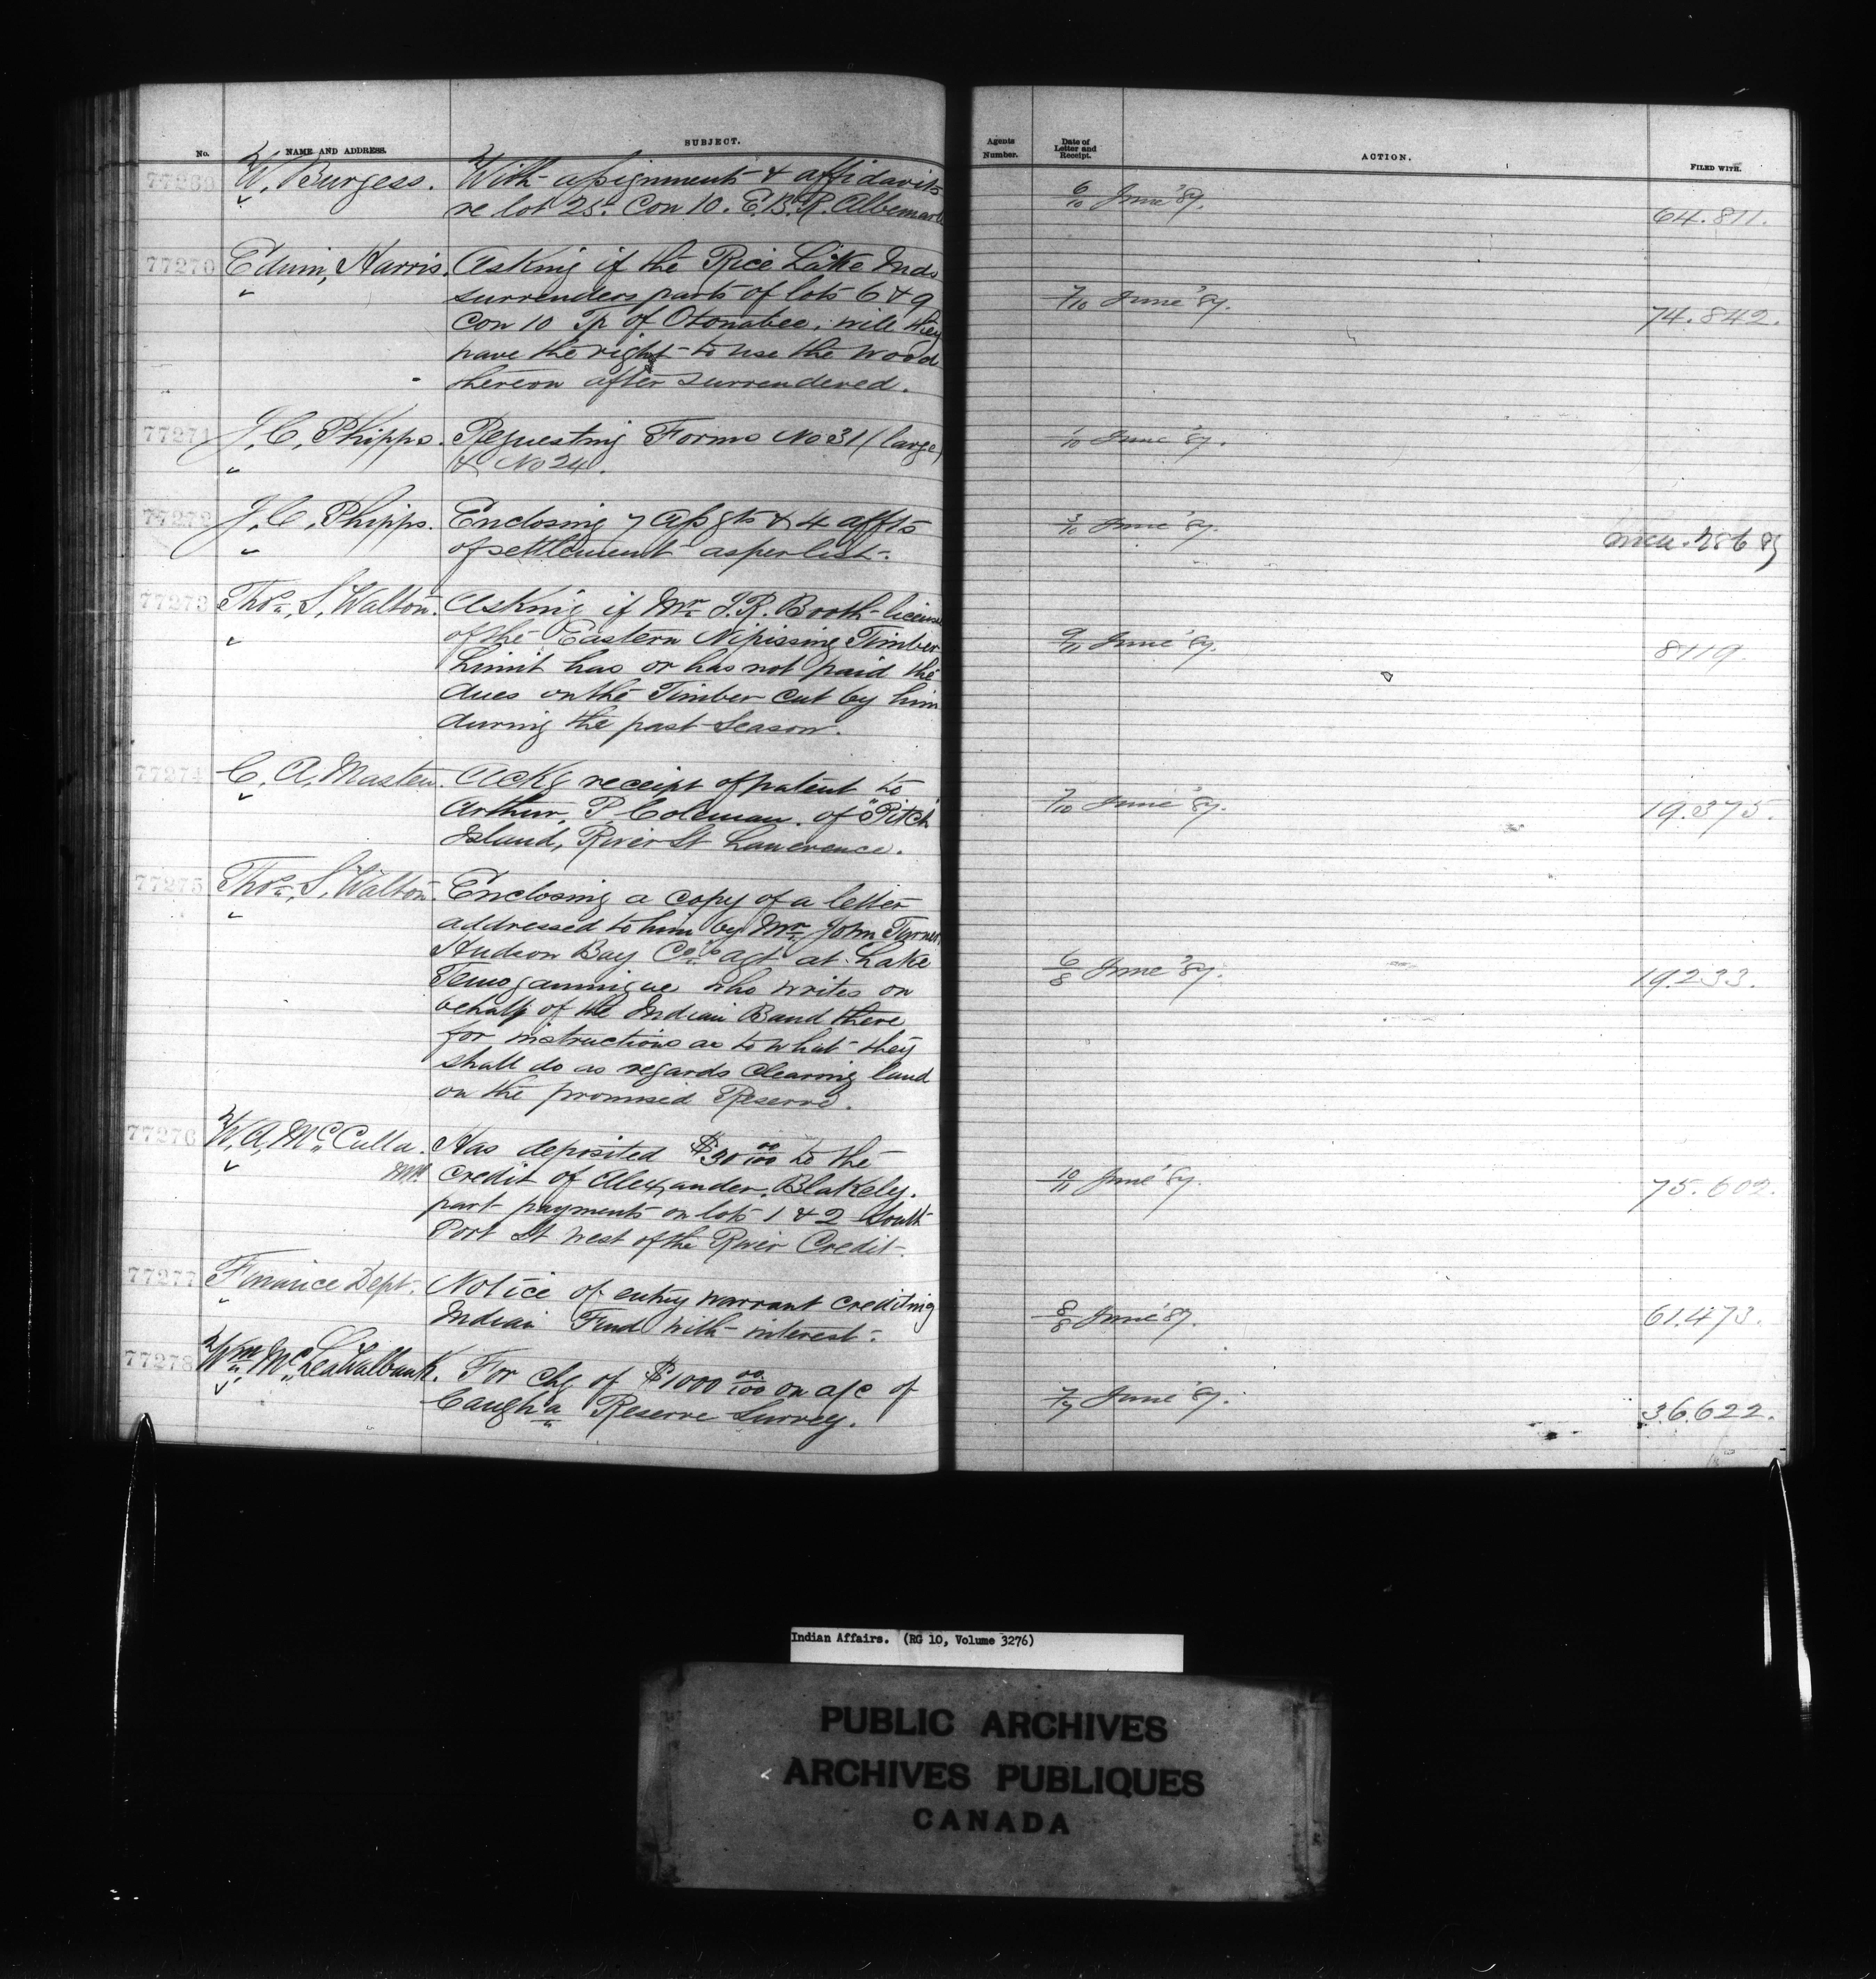 No.
NAME AND ADDRESS.
SUBJECT.
Agents Number.
Date of Letter and Receipt.
ACTION.
FILED WITH.
77269 W. Burgess. With assignment & affidavits
re lot 25. Con 10. E.B.R. Albemarle
6/10 June '87. 64.811.
77270 Edwin, Harris. Asking if the Rice Lake Inds
surrenders parts of lots 6 & 9
Con 10 Tp of Otonabee, will they
have the right to use the wood
thereon after surrendered.
7/10 June '87. 74.842.
77271 J. C. Phipps. Requesting Forms No 31 (large)
& No 24.
1/10 June '87.
77272 J. C. Phipps. Enclosing 7 assgts & 4 affts
of settlement as per list.
3/10 June '87.
77273 Thos. S. Walton. Asking if Mr J. R. Booth licensee
of the Eastern Nipissing Timber
Limit has or has not paid the
dues on the Timber cut by him
during the past season.
9/11 June '87. 8119.
77274 C. A. Masten. Ackg receipt of patent to
Arthur, P. Coleman. of "Pitch"
Island, River St Lawerence.
7/10 June '87. 19.375.
77275 Thos. S. Walton. Enclosing a copy of a letter
addressed to him by Mr John Turner,
Hudson Bay Co's agt at Lake
Temogammigue who writes on
behalf of the Indian Band there
for instructions as to what they
shall do as regards clearing land
on the promised Reserve.
6/8 June '87. 19.233.
77276 W. A. McCulla. Has deposited $30 00/100 to the
credit of Alexander, Blakely.
part payments on lots 1 & 2 South
Port St West of the River Credit.
10/11 June '87. 75.602.
77277 Finance Dept. Notice of entry warrant crediting
Indian Fund with interest.
8/8 June '87. 61.473.
77278 Wm McLea Walbank. For chq of $1000 00/100 on a/c of
Caugha Reserve Survey.
7/7 June '87. 36.622.
Indian Affairs. (RG 10, Volume 3276)
PUBLIC ARCHIVES
ARCHIVES PUBLIQUES
CANADA